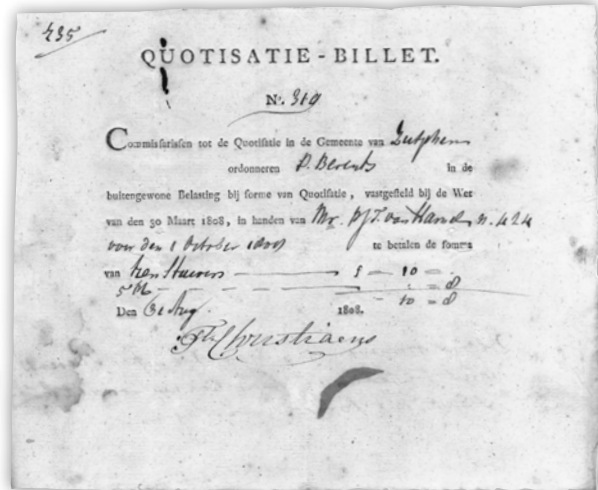 435
QUOTISATIE-BILLET.
No. 319
Commissarissen tot de Quotisatie in de Gemeente van Zutphen
ordonneren P. Berents in de
buitengewone Belasting bij forme van Quotisatie, vastgesteld bij de Wet
van den 30 Maart 1808, in handen van Mr. n. 424
voor den 1 October te betalen de somma
van tien Stuivers — 10 —
— 8
Den 31 Aug. 1808. — 10 — 8
Christiaens